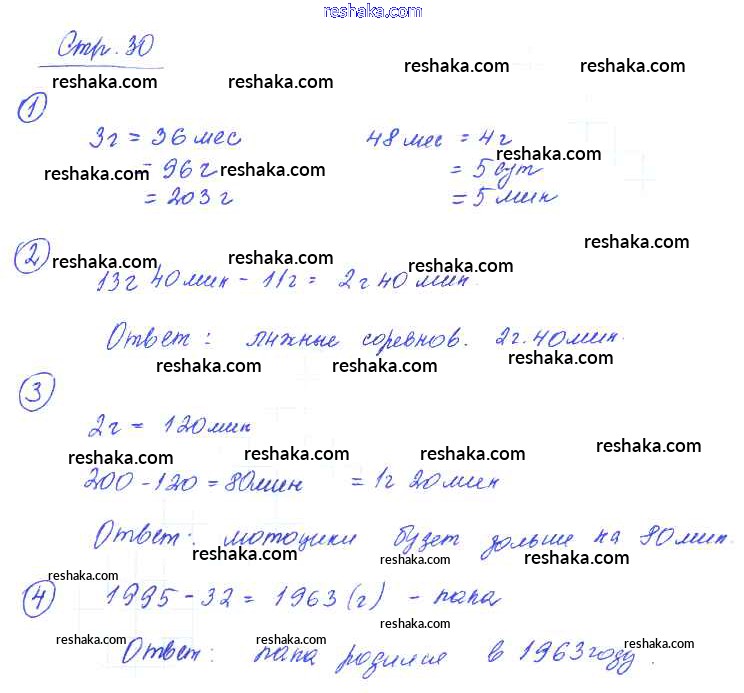 reshaka.com
Стр. 30
reshaka.com reshaka.com reshaka.com
1
3г = 36 мес 48 мес = 4г
reshaka.com reshaka.com reshaka.com
= 96 г = 5 сут
reshaka.com reshaka.com
= 203 г = 5 мин
reshaka.com
2
reshaka.com reshaka.com reshaka.com
13г 40 мин - 11г = 2г 40 мин.
Ответ: лыжные соревнов. 2г. 40 мин.
reshaka.com reshaka.com reshaka.com
3
2г = 120 мин
reshaka.com reshaka.com reshaka.com reshaka.com
200 - 120 = 80 мин = 1г 20 мин
Ответ: мотоцики будет дольше на 80 мин.
reshaka.com reshaka.com reshaka.com
reshaka.com reshaka.com reshaka.com
4
1995 - 32 = 1963 (г) - папа
reshaka.com reshaka.com reshaka.com reshaka.com
Ответ: папа родился в 1963 году.